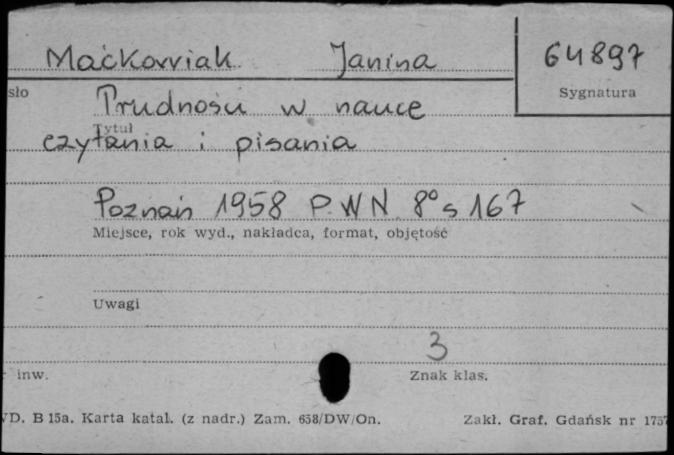 Maćkowiak Janina 64897
sło Sygnatura
Trudności w nauce
Tytuł
czytania i pisania
Poznań 1958 P.W.N. 8° s 167
Miejsce, rok wyd., nakładca, format, objętość
Uwagi
3
inw. Znak klas.
D. B 15a. Karta katal. (z nadr.) Zam. 658/DW/On. Zakł. Graf. Gdańsk nr 1757